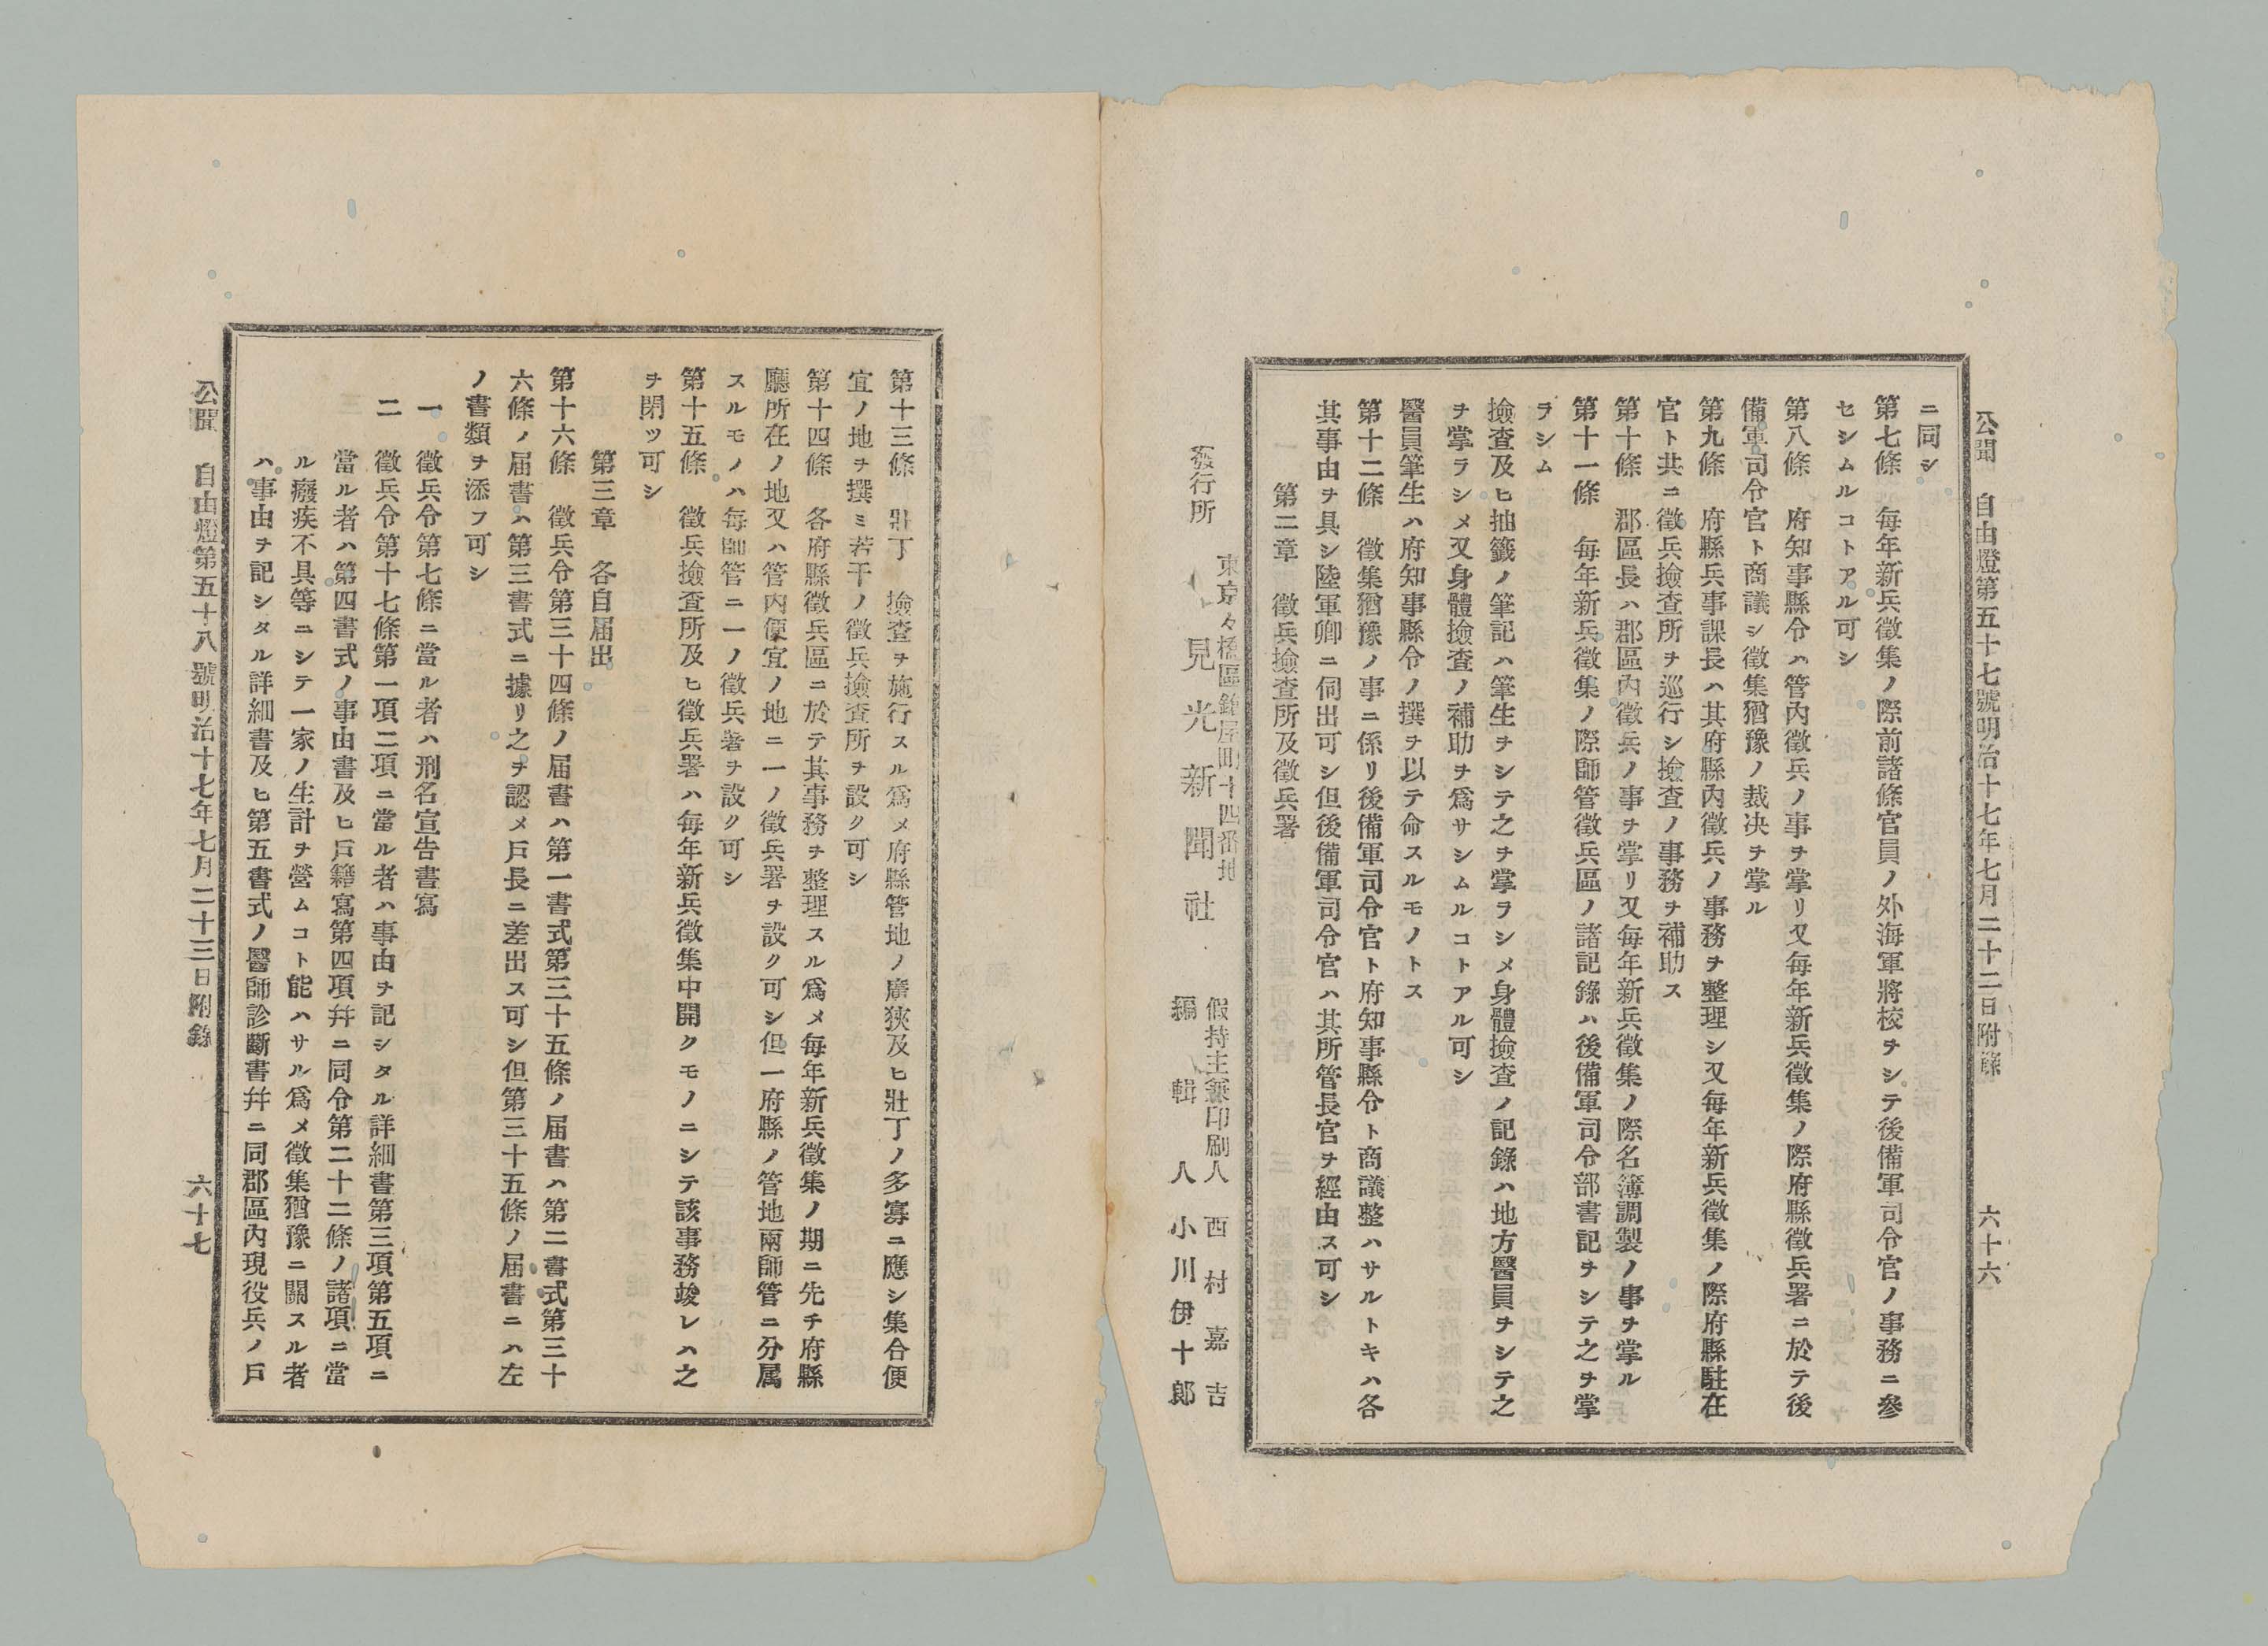 公聞　自由燈第五十七號明治十七年七月二十二日附錄　六十六
ニ同シ
第七條　每年新兵徵集ノ際前諸條官員ノ外海軍將校ヲシテ後備軍司令官ノ事務ニ參
セシムルコトアル可シ
第八條　府知事縣令ハ管內徵兵ノ事ヲ掌リ又每年新兵徵集ノ際府縣徵兵署ニ於テ後
備軍司令官ト商議シ徵集猶豫ノ裁決ヲ掌ル
第九條　府縣兵事課長ハ其府縣內徵兵ノ事務ヲ整理シ又每年新兵徵集ノ際府縣駐在
官ト共ニ徵兵撿查所ヲ巡行シ撿查ノ事務ヲ補助ス
第十條　郡區長ハ郡區內徵兵ノ事ヲ掌リ又每年新兵徵集ノ際名簿調製ノ事ヲ掌ル
第十一條　每年新兵徵集ノ際師管徵兵區ノ諸記錄ハ後備軍司令部書記ヲシテ之ヲ掌
ラシム
撿查及ヒ抽籤ノ筆記ハ筆生ヲシテ之ヲ掌ラシメ身體撿查ノ記錄ハ地方醫員ヲシテ之
ヲ掌ラシメ又身體撿查ノ補助ヲ爲サシムルコトアル可シ
醫員筆生ハ府知事縣令ノ撰ヲ以テ命スルモノトス
第十二條　徵集猶豫ノ事ニ係リ後備軍司令官ト府知事縣令ト商議整ハサルトキハ各
其事由ヲ具シ陸軍卿ニ伺出可シ但後備軍司令官ハ其所管長官ヲ經由ス可シ
第二章　徵兵撿查所及徵兵署
發行所　東京々橋區鎗屋町十四番地
見光新聞社
假持主兼印刷人　西村嘉吉
編輯人　小川伊十郎
第十三條　壯丁撿查ヲ施行スル爲メ府縣管地ノ廣狹及ヒ壯丁ノ多寡ニ應シ集合便
宜ノ地ヲ撰ミ若干ノ徵兵撿查所ヲ設ク可シ
第十四條　各府縣徵兵區ニ於テ其事務ヲ整理スル爲メ每年新兵徵集ノ期ニ先チ府縣
廳所在ノ地又ハ管內便宜ノ地ニ一ノ徵兵署ヲ設ク可シ但一府縣ノ管地兩師管ニ分属
スルモノハ每師管ニ一ノ徵兵署ヲ設ク可シ
第十五條　徵兵撿查所及ヒ徵兵署ハ每年新兵徵集中開クモノニシテ該事務竣レハ之
ヲ閉ツ可シ
第三章　各自届出
第十六條　徵兵令第三十四條ノ届書ハ第一書式第三十五條ノ届書ハ第二書式第三十
六條ノ届書ハ第三書式ニ據リ之ヲ認メ戶長ニ差出ス可シ但第三十五條ノ届書ニハ左
ノ書類ヲ添フ可シ
一　徵兵令第七條ニ當ル者ハ刑名宣告書寫
二　徵兵令第十七條第一項二項ニ當ル者ハ事由ヲ記シタル詳細書第三項第五項ニ
當ル者ハ第四書式ノ事由書及ヒ戶籍寫第四項幷ニ同令第二十二條ノ諸項ニ當
ル癈疾不具等ニシテ一家ノ生計ヲ營ムコト能ハサル爲メ徵集猶豫ニ關スル者
ハ事由ヲ記シタル詳細書及ヒ第五書式ノ醫師診斷書幷ニ同郡區內現役兵ノ戶
公聞　自由燈第五十八號明治十七年七月二十三日附錄　六十七